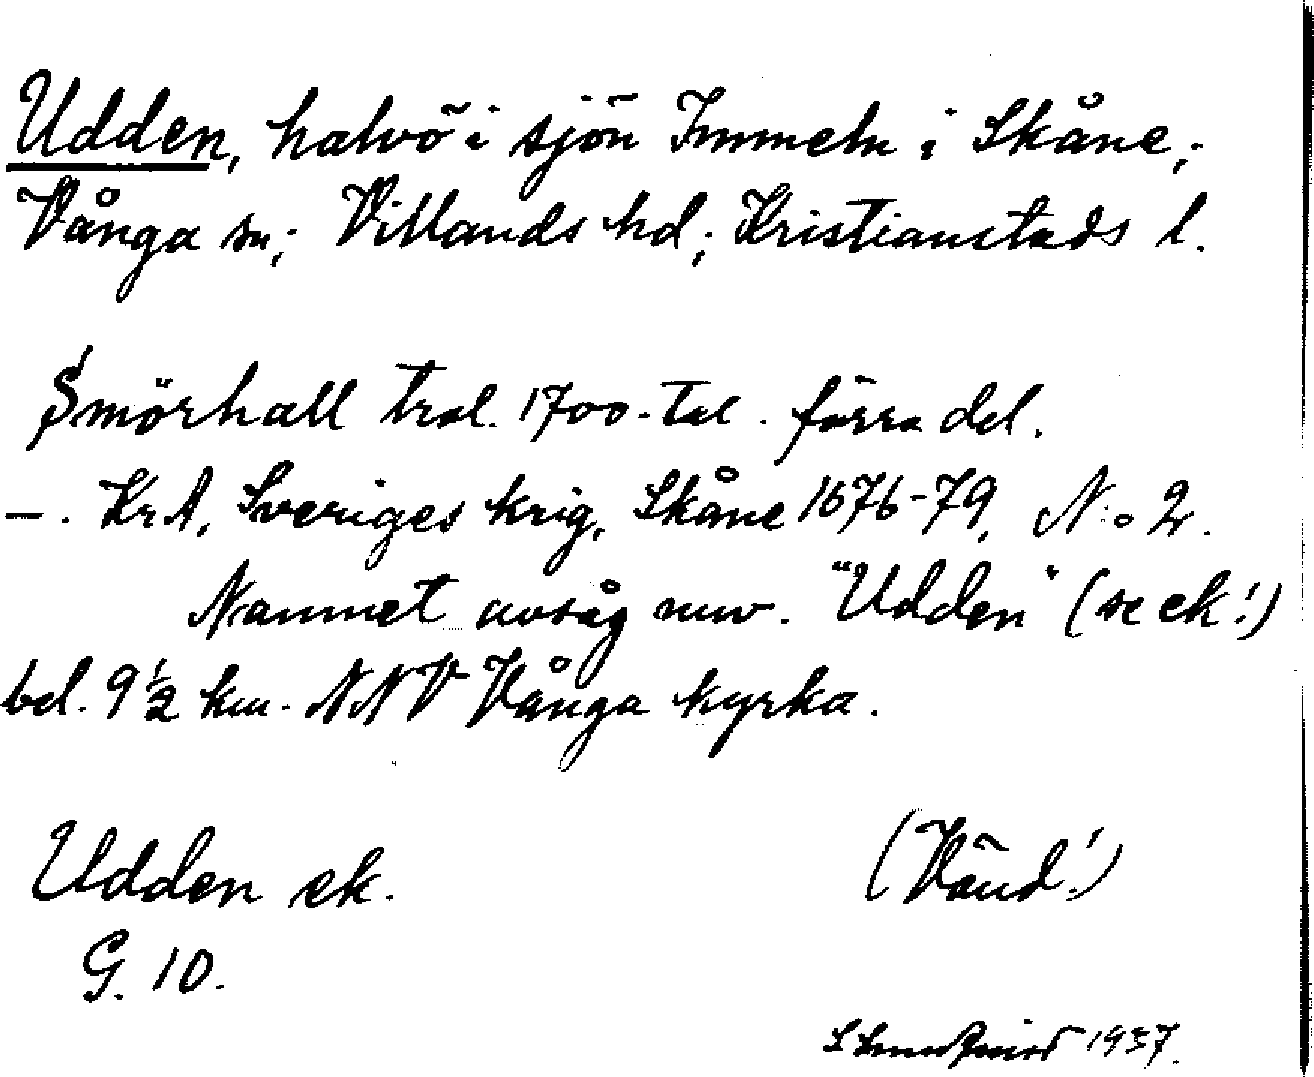 Udden, halvö i sjön Immeln i Skåne,
Vånga sn; Villands hd; Kristianstads l.
Smörhall trol. 1700-tal. förra del.
–. KrA, Sveriges krig, Skåne 1676-79, N:o 2.
Namnet avsåg nuv. "Udden" (se ek!)
bel. 9½ km. NNV Vånga kyrka.
Udden ek. (Vänd!)
G. 10.
1937.